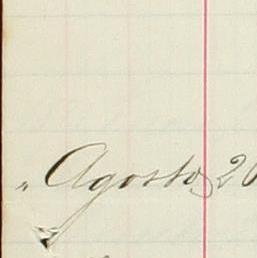 " Agosto 20